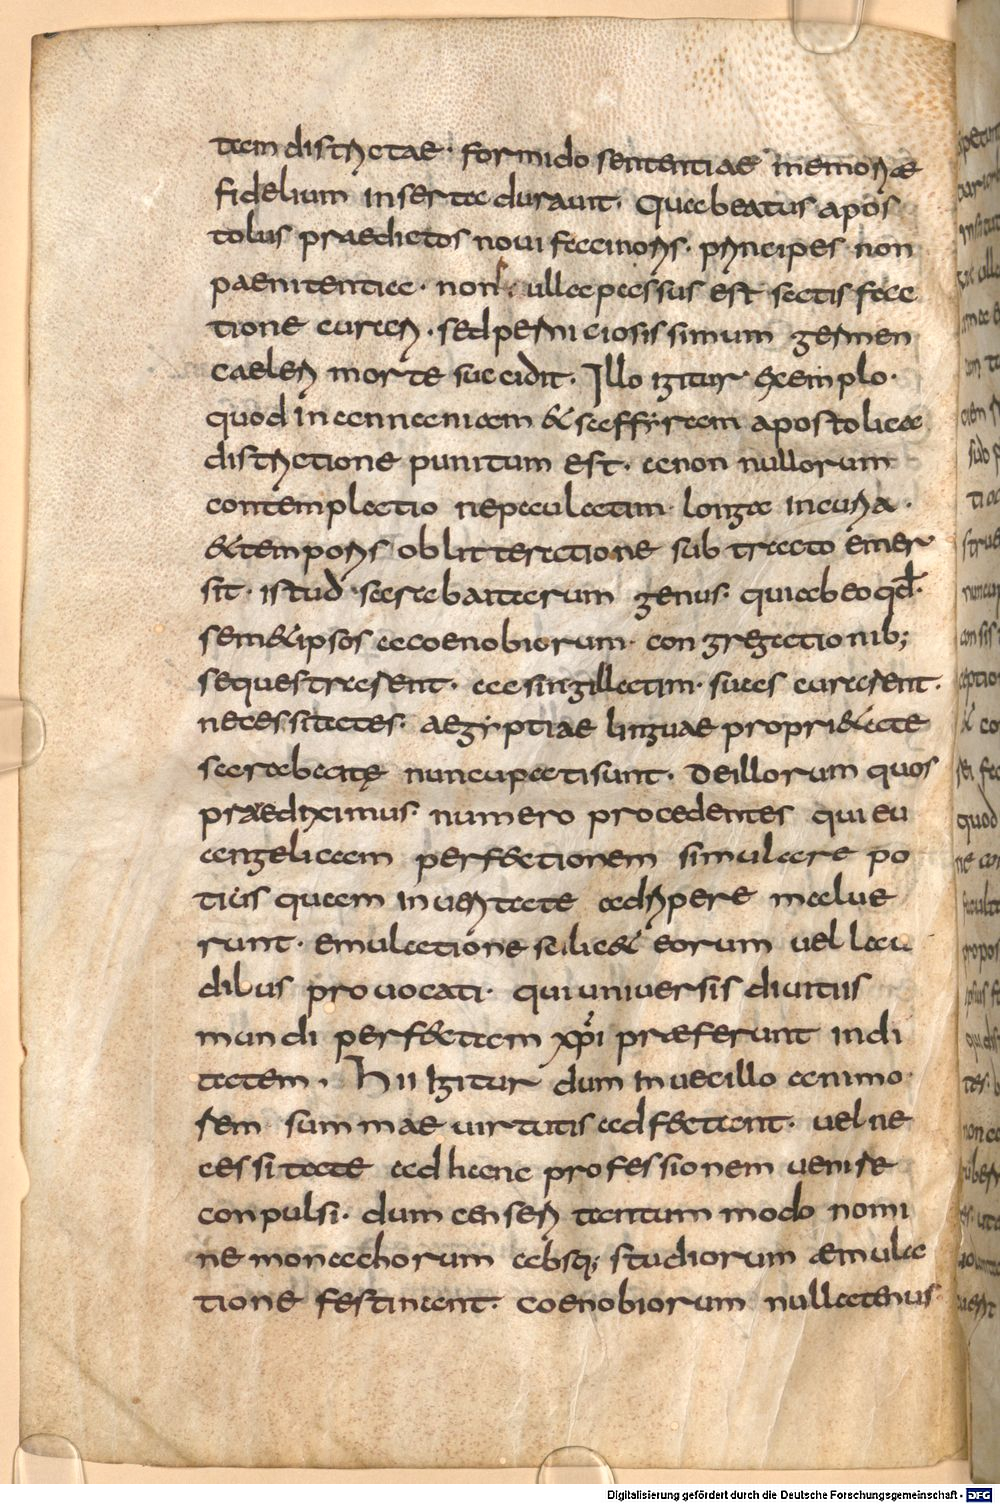 tam districtae · formido sententiae memoriae
fidelium inserta durauit · Qua beatus apos
tolus praedictos noui facinoris · principes non
paenitentiae · non ulla passus est satisfac
tione curari · sed perniciosissimum germen
caeleri morte succidit · Illo igitur exemplo ·
quod in annaniam & saffyram apostolica
districtione punitum est · a non nullorum
contemplatio nepaulatim longa incuria ·
& temporis oblitteratione subtracto emer
sit · istud sarabaitarum genus · qui ab eo qđ ·
sem&ipsos a coenobiorum · congregationib;
sequestrarent · ac singillatim · suas curarent ·
necessitates · aegyptiae linguae propri&ate
sarabaitę nuncupati sunt · De illorum quos
praediximus · numero procedentes qui eu
angelicam perfectionem simulare po
tius quam in ueritate adripere malue
runt · emulatione scilic& eorum uel lau
dibus prouocati · qui uniuersis diuitiis
mundi perf&tam xp̄i praeferunt indi
tatem · Hii igitur dum inuecillo animo
rem summae uirtutis adf&tant · uel ne
cessitate ad hanc professionem uenire
conpulsi · dum censeri tantummodo nomi
ne monachorum absq; studiorum aemula
tione festinant · coenobiorum nullatenus
Digitalisierung gefördert durch die Deutsche Forschungsgemeinschaft - DFG